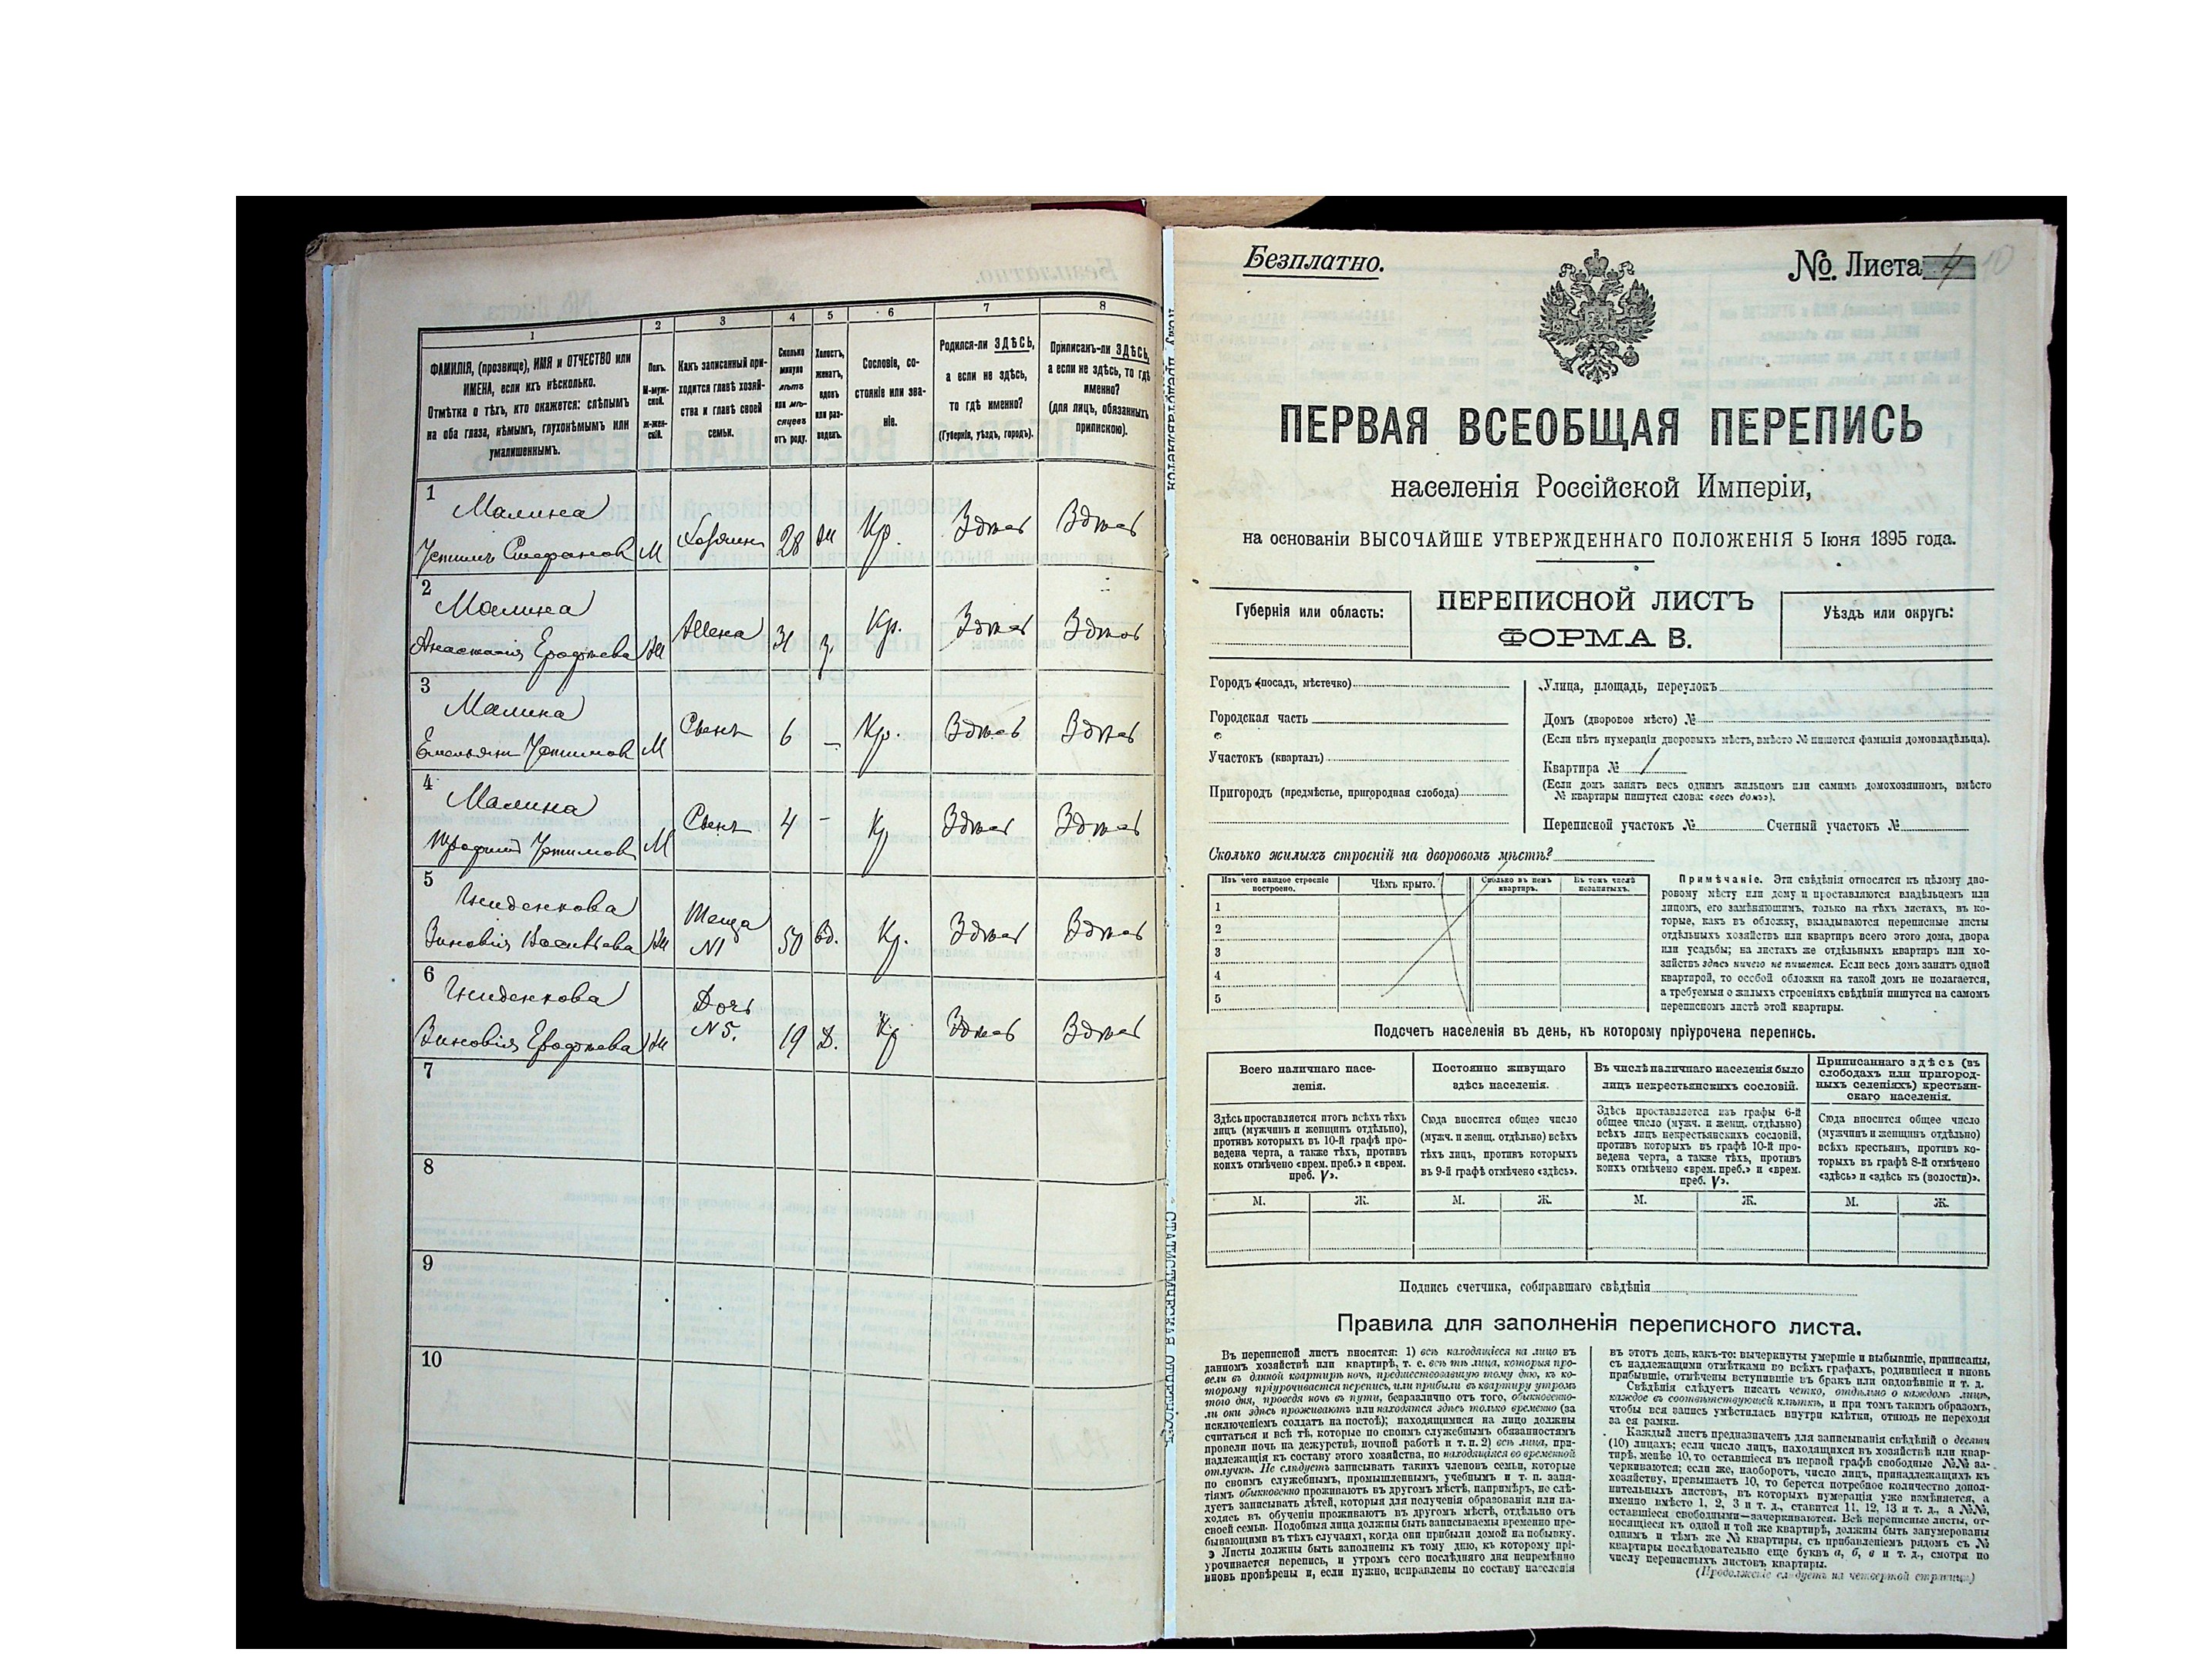 1
2
3
4
5
6
7
8
ФАМИЛІЯ, (прозвище), ИМЯ и ОТЧЕСТВО или
ИМЕНА, если ихъ нѣсколько.
Отмѣтка о тѣхъ, кто окажется: слѣпымъ
на оба глаза, нѣмымъ, глухонѣмымъ или
умалишеннымъ.
Полъ.
М-муж-
ской.
Ж-жен-
скій.
Какъ записанный при-
ходится главѣ хозяй-
ства и главѣ своей
семьи.
Сколько
минуло
лѣтъ
или мѣ-
сяцевъ
отъ роду.
Холостъ,
женатъ,
вдовъ
или раз-
веденъ.
Сословіе, со-
стояніе или зва-
ніе.
Родился-ли ЗДѢСЬ,
а если не здѣсь,
то гдѣ именно?
(Губернія, уѣздъ, городъ).
Приписанъ-ли ЗДѢСЬ,
а если не здѣсь, то гдѣ
именно?
(для лицъ, обязанныхъ
припискою).
1
Малина
Устимъ Стефановъ М Хозяинъ 28 Ж Кр. Здѣсь Здѣсь
2
Малина
Анастасія Ерофѣева Ж Жена 31 З. Кр. Здѣсь Здѣсь
3
Малина
Емельянъ Устимовъ М Сынъ 6 – Кр. Здѣсь Здѣсь
4
Малина
Трофимъ Устимовъ М Сынъ 4 – Кр Здѣсь Здѣсь
5
Зиновія Васильева Ж Теща N1 50 вд. Кр. Здѣсь Здѣсь
6
Зиновія Ерофѣева Ж Дочь N5. 19 Д. Кр Здѣсь Здѣсь
7
8
9
10
Безплатно.
№. Листа 4 10
ПЕРВАЯ ВСЕОБЩАЯ ПЕРЕПИСЬ
населенія Россійской Имперіи,
на основаніи ВЫСОЧАЙШЕ УТВЕРЖДЕННАГО ПОЛОЖЕНІЯ 5 Іюня 1895 года.
Губернія или область:
ПЕРЕПИСНОЙ ЛИСТЪ
ФОРМА В.
Уѣздъ или округъ:
Городъ (посадъ, мѣстечко)
Городская часть
Участокъ (кварталъ)
Пригородъ (предмѣстье, пригородная слобода)
Улица, площадь, переулокъ
Домъ (дворовое мѣсто) №
(Если нѣтъ нумераціи дворовыхъ мѣстъ, вмѣсто № пишется фамилія домовладѣльца).
Квартира № 1
(Если домъ занятъ весь однимъ жильцомъ или самимъ домохозяиномъ, вмѣсто
№ квартиры пишутся слова: «весь домъ»).
Переписной участокъ № Счетный участокъ №
Сколько жилыхъ строеній на дворовомъ мѣстѣ?
Изъ чего каждое строеніе
построено.
Чѣмъ крыто.
Сколько въ немъ
квартиръ.
Въ томъ числѣ
незанятыхъ.
1
2
3
4
5
Примѣчаніе. Эти свѣдѣнія относятся къ цѣлому дво-
ровому мѣсту или дому и проставляются владѣльцемъ или
лицомъ, его замѣняющимъ, только на тѣхъ листахъ, въ ко-
торые, какъ въ обложку, вкладываются переписные листы
отдѣльныхъ хозяйствъ или квартиръ всего этого дома, двора
или усадьбы; на листахъ же отдѣльныхъ квартиръ или хо-
зяйствъ здѣсь ничего не пишется. Если весь домъ занятъ одной
квартирой, то особой обложки на такой домъ не полагается,
а требуемыя о жилыхъ строеніяхъ свѣдѣнія пишутся на самомъ
переписномъ листѣ этой квартиры.
Подсчетъ населенія въ день, къ которому пріурочена перепись.
Всего наличнаго насе-
ленія.
Постоянно живущаго
здѣсь населенія.
Въ числѣ наличнаго населенія было
лицъ некрестьянскихъ сословій.
Приписаннаго здѣсь (въ
слободахъ или пригород-
ныхъ селеніяхъ) крестьян-
скаго населенія.
Здѣсь проставляется итогъ всѣхъ тѣхъ
лицъ (мужчинъ и женщинъ отдѣльно),
противъ которыхъ въ 10-й графѣ про-
ведена черта, а также тѣхъ, противъ
коихъ отмѣчено «врем. преб.» и «врем.
преб. V».
Сюда вносится общее число
(мужч. и женщ. отдѣльно) всѣхъ
тѣхъ лицъ, противъ которыхъ
въ 9-й графѣ отмѣчено «здѣсь».
Здѣсь проставляется изъ графы 6-й
общее число (мужч. и женщ. отдѣльно)
всѣхъ лицъ некрестьянскихъ сословій,
противъ которыхъ въ графѣ 10-й про-
ведена черта, а также тѣхъ, противъ
коихъ отмѣчено «врем. преб.» и «врем.
преб. V».
Сюда вносится общее число
(мужчинъ и женщинъ отдѣльно)
всѣхъ крестьянъ, противъ ко-
торыхъ въ графѣ 8-й отмѣчено
«здѣсь» и «здѣсь къ (волости)».
М. Ж. М. Ж. М. Ж. М. Ж.
Подпись счетчика, собиравшаго свѣдѣнія
Правила для заполненія переписного листа.
Въ переписной листъ вносятся: 1) всѣ находящіеся на лицо въ
данномъ хозяйствѣ или квартирѣ, т. е. всѣ тѣ лица, которыя про-
вели въ данной квартирѣ ночь, предшествовавшую тому дню, къ ко-
торому пріурочивается перепись, или прибыли въ квартиру утромъ
того дня, проведя ночь въ пути, безразлично отъ того, обыкновенно-
ли они здѣсь проживаютъ или находятся здѣсь только временно (за
исключеніемъ солдатъ на постоѣ); находящимися на лицо должны
считаться и всѣ тѣ, которые по своимъ служебнымъ обязанностямъ
провели ночь на дежурствѣ, ночной работѣ и т. п. 2) всѣ лица, при-
надлежащія къ составу этого хозяйства, но находящіяся во временной
отлучкѣ. Не слѣдуетъ записывать такихъ членовъ семьи, которые
по своимъ служебнымъ, промышленнымъ, учебнымъ и т. п. заня-
тіямъ обыкновенно проживаютъ въ другомъ мѣстѣ, напримѣръ, не слѣ-
дуетъ записывать дѣтей, которыя для полученія образованія или на-
ходясь въ обученіи проживаютъ въ другомъ мѣстѣ, отдѣльно отъ
своей семьи. Подобныя лица должны быть записываемы временно пре-
бывающими въ тѣхъ случаяхъ, когда они прибыли домой на побывку.
Листы должны быть заполнены къ тому дню, къ которому прі-
урочивается перепись, и утромъ сего послѣдняго дня непремѣнно
вновь провѣрены и, если нужно, исправлены по составу населенія
въ этотъ день, какъ-то: вычеркнуты умершіе и выбывшіе, приписаны,
съ надлежащими отмѣтками во всѣхъ графахъ, родившіеся и вновь
прибывшіе, отмѣчены вступившіе въ бракъ или овдовѣвшіе и т. д.
Свѣдѣнія слѣдуетъ писать четко, отдѣльно о каждомъ лицѣ,
каждое въ соотвѣтствующей клѣткѣ, и при томъ такимъ образомъ,
чтобы вся запись умѣстилась внутри клѣтки, отнюдь не переходя
за ея рамки.
Каждый листъ предназначенъ для записыванія свѣдѣній о десяти
(10) лицахъ; если число лицъ, находящихся въ хозяйствѣ или квар-
тирѣ, менѣе 10, то оставшіеся въ первой графѣ свободные №№ за-
черкиваются; если же, наоборотъ, число лицъ, принадлежащихъ къ
хозяйству, превышаетъ 10, то берется потребное количество допол-
нительныхъ листовъ, въ которыхъ нумерація уже измѣняется, а
именно вмѣсто 1, 2, 3 и т. д., ставится 11, 12, 13 и т. д., а №№,
оставшіеся свободными—зачеркиваются. Всѣ переписные листы, от-
носящіеся къ одной и той же квартирѣ, должны быть занумерованы
однимъ и тѣмъ же № квартиры, съ прибавленіемъ рядомъ съ №
квартиры послѣдовательно еще буквъ а, б, в и т. д., смотря по
числу переписныхъ листовъ квартиры.
(Продолженіе слѣдуетъ на четвертой страницѣ)